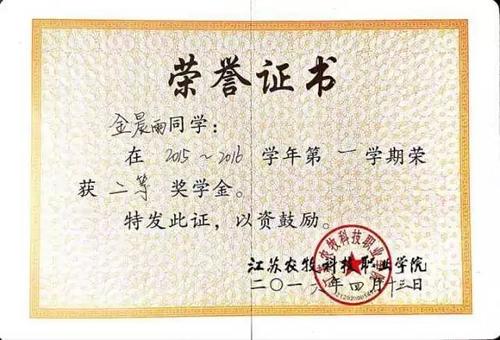 荣誉证书
金晨雨同学：
在 2015～2016 学年第 一 学期荣
获 二等 奖学金。
特发此证，以资鼓励。
江苏农牧科技职业学院
二〇一六年四月十三日